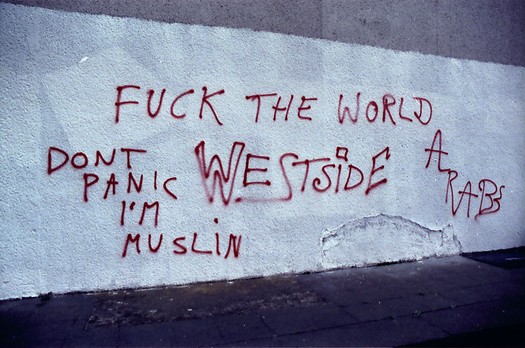 FUCK THE WORLD
DONT
PANIC
I'M
MUSLIN
WESTSIDE
A
RABS